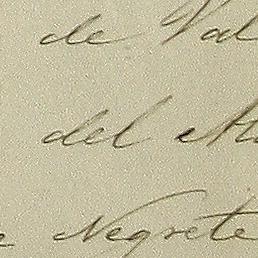 de Val
del
Negrete